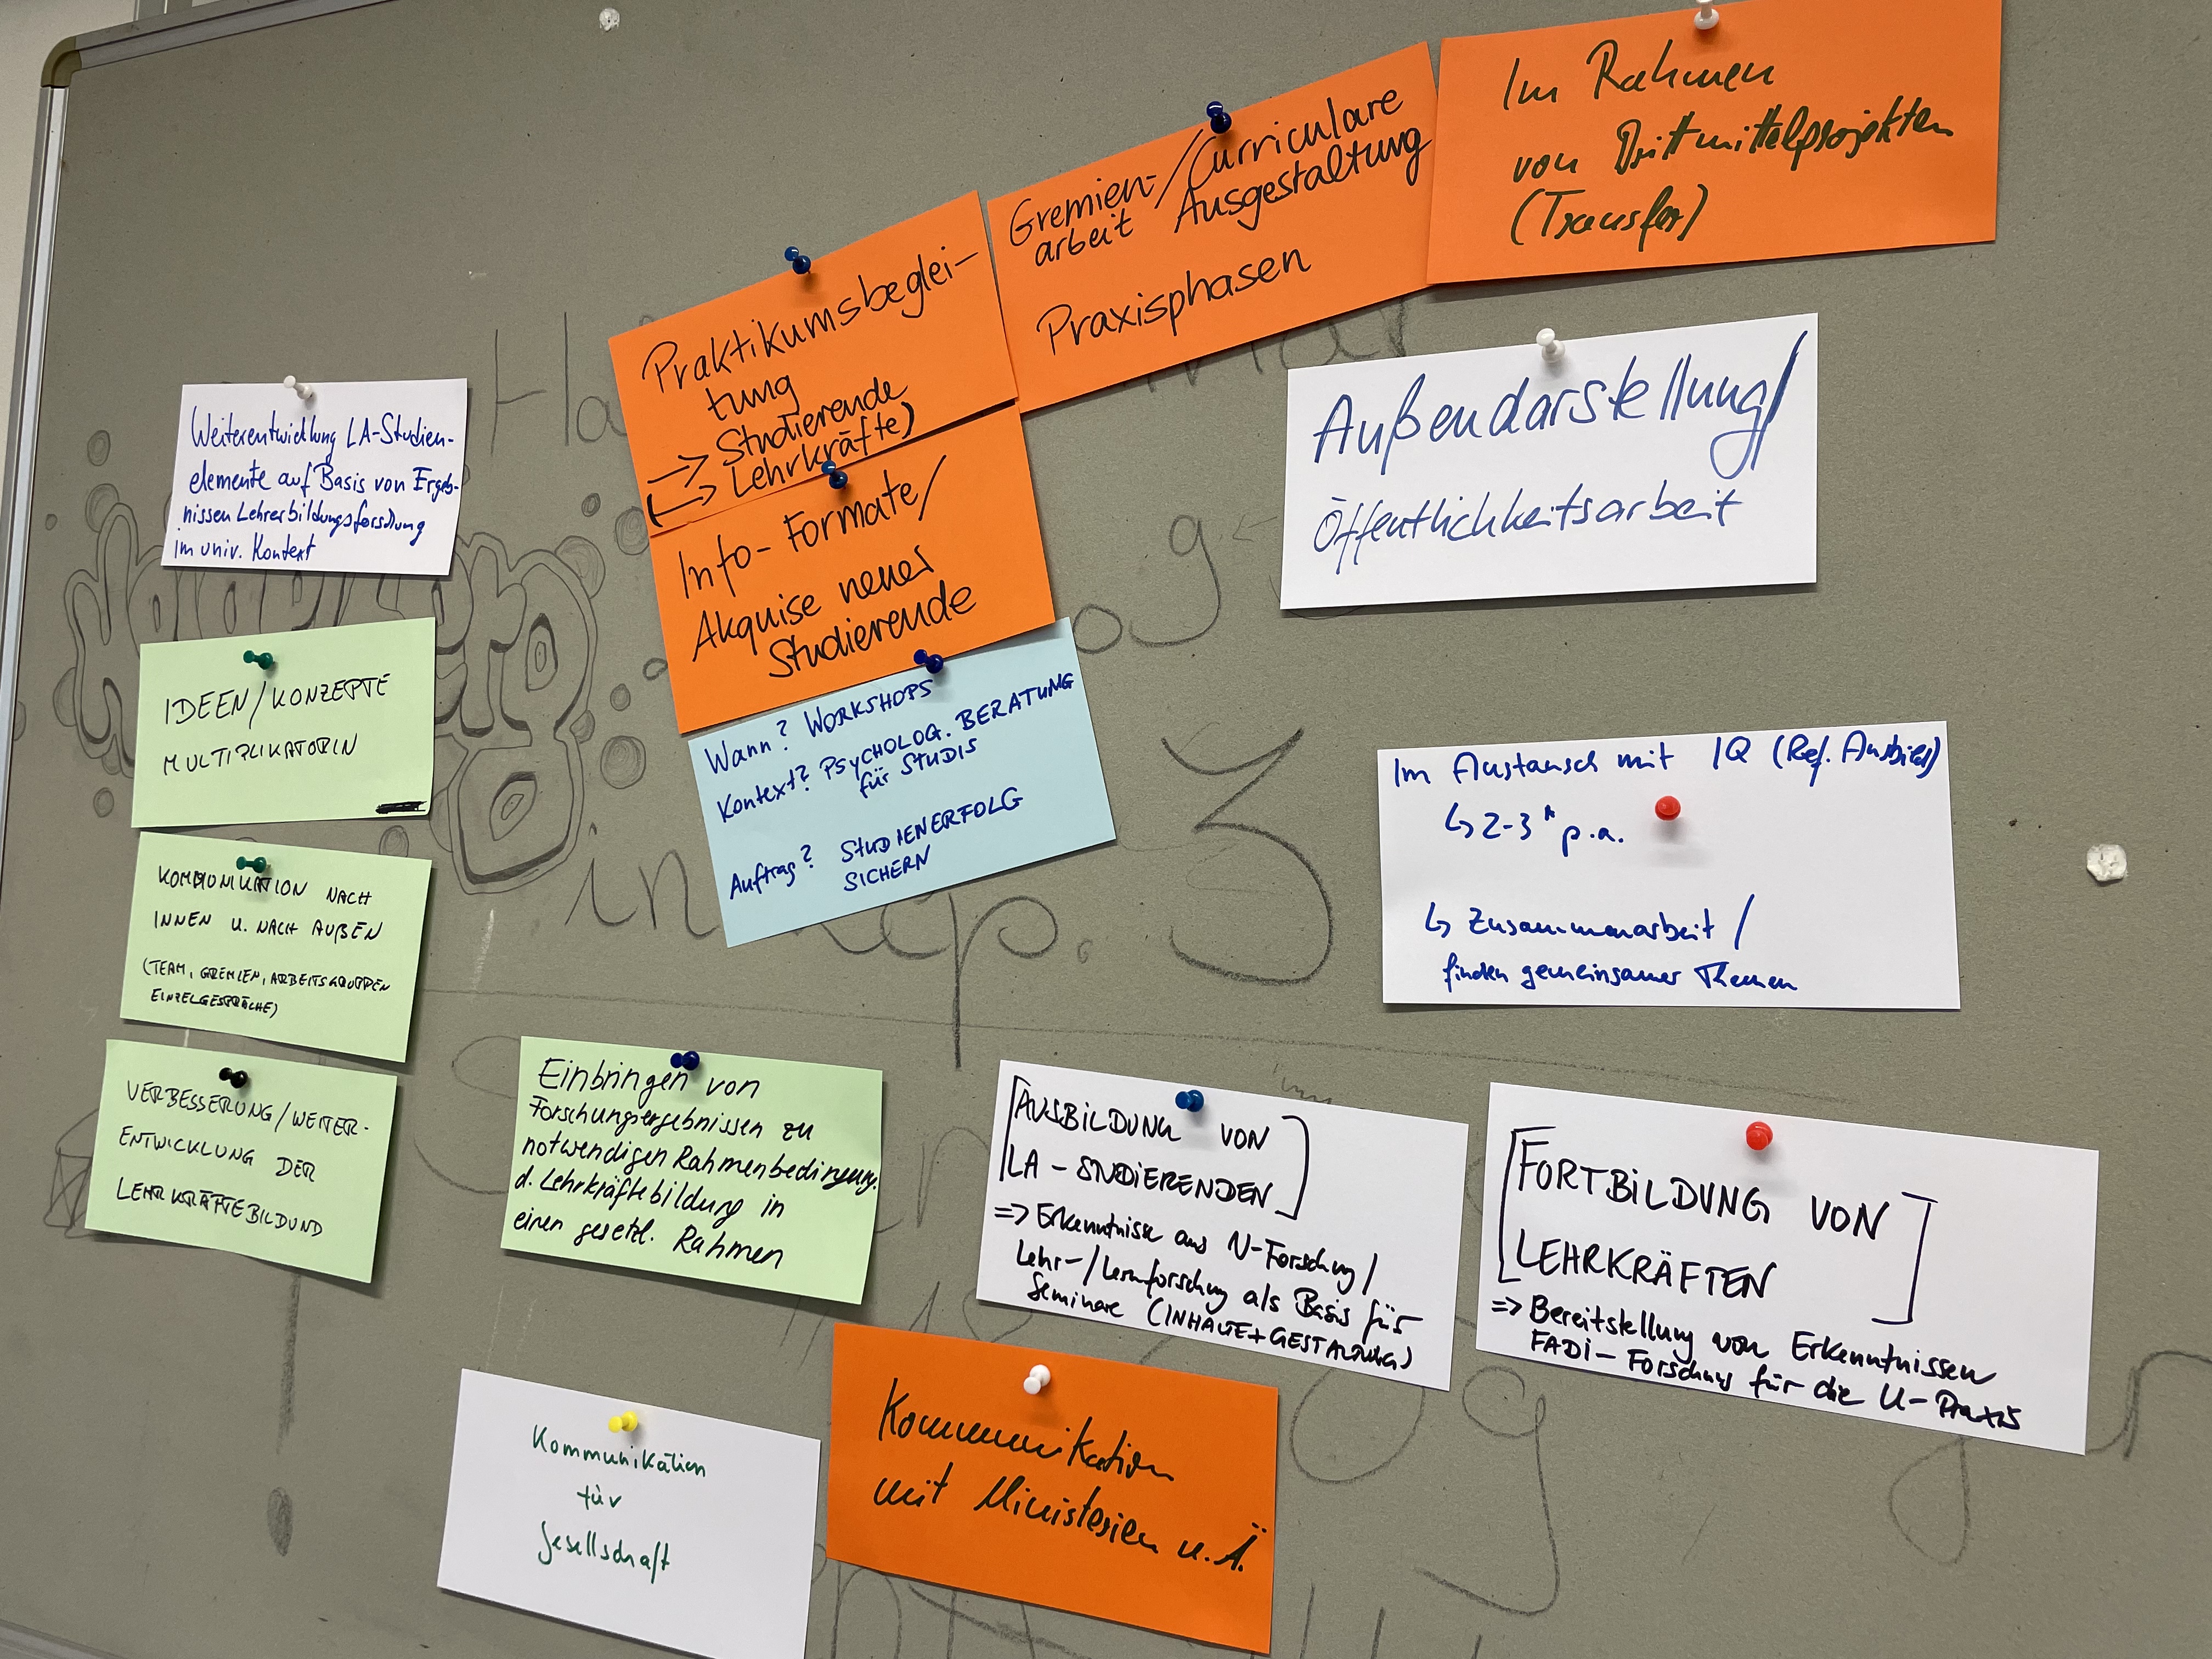 Im Rahmen
von Drittmittelprojekten
(Transfer)
Gremien-/Curriculare
arbeit Ausgestaltung
Praxisphasen
Praktikumsbeglei-
tung
→ Studierende
(→ Lehrkräfte)
Info-Formate/
Akquise neuer
Studierende
Wann? WORKSHOPS
Kontext? PSYCHOLOG. BERATUNG
für STUDIS
Auftrag? STUDIENERFOLG
SICHERN
Außendarstellung/
Öffentlichkeitsarbeit
Weiterentwicklung LA-Studien-
elemente auf Basis von Ergeb-
nissen Lehrerbildungsforschung
im univ. Kontext
IDEEN/KONZEPTE
MULTIPLIKATORIN
KOMMUNIKATION NACH
INNEN U. NACH AUßEN
(TEAM, GREMIEN, ARBEITSGRUPPEN
EINZELGESPRÄCHE)
VERBESSERUNG/WEITER-
ENTWICKLUNG DER
LEHRKRÄFTEBILDUND
Im Austausch mit IQ (Ref. Ausbild)
↳ 2-3* p.a.
↳ Zusammenarbeit /
finden gemeinsamer Themen
Einbringen von
Forschungsergebnissen zu
notwendigen Rahmenbedingung.
d. Lehrkräftebildung in
einen gesetzl. Rahmen
[AUSBILDUNG VON
LA-STUDIERENDEN]
=> Erkenntnisse aus N-Forschung/
Lehr-/Lernforschung als Basis für
Seminare (INHALTE+GESTALTUNG)
[FORTBILDUNG VON
LEHRKRÄFTEN]
=> Bereitstellung von Erkenntnissen
FADI-Forschung für die U-Praxis
Kommunikation
für
Gesellschaft
Kommunikation
mit Ministerien u.Ä.
in Kp. 3